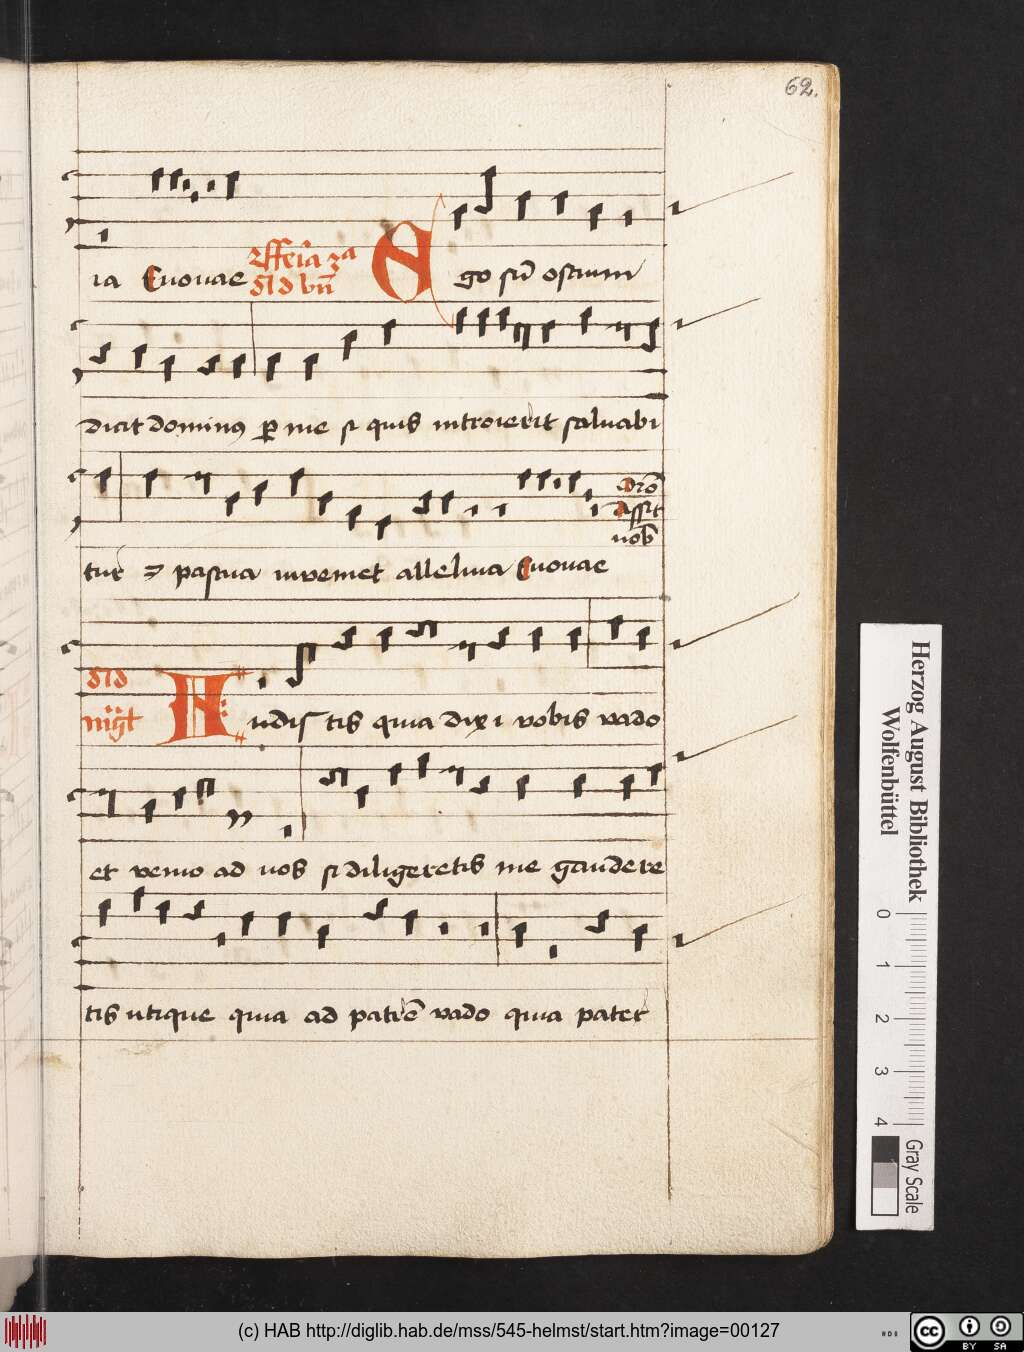 62.
ia Euouae
Ego sū ostium
dicit dominus per me si quis introierit saluabi
tur et pascua inveniet alleluia Euouae
Adiō
assit
nob
Audis tis quia dixi vobis vado
et venio ad vos si diligeretis me gaudere
tis utique quia ad patrē vado quia pater
Herzog August Bibliothek
Wolfenbüttel
0 1 2 3 4
Gray Scale
(c) HAB http://diglib.hab.de/mss/545-helmst/start.htm?image=00127
cc BY SA